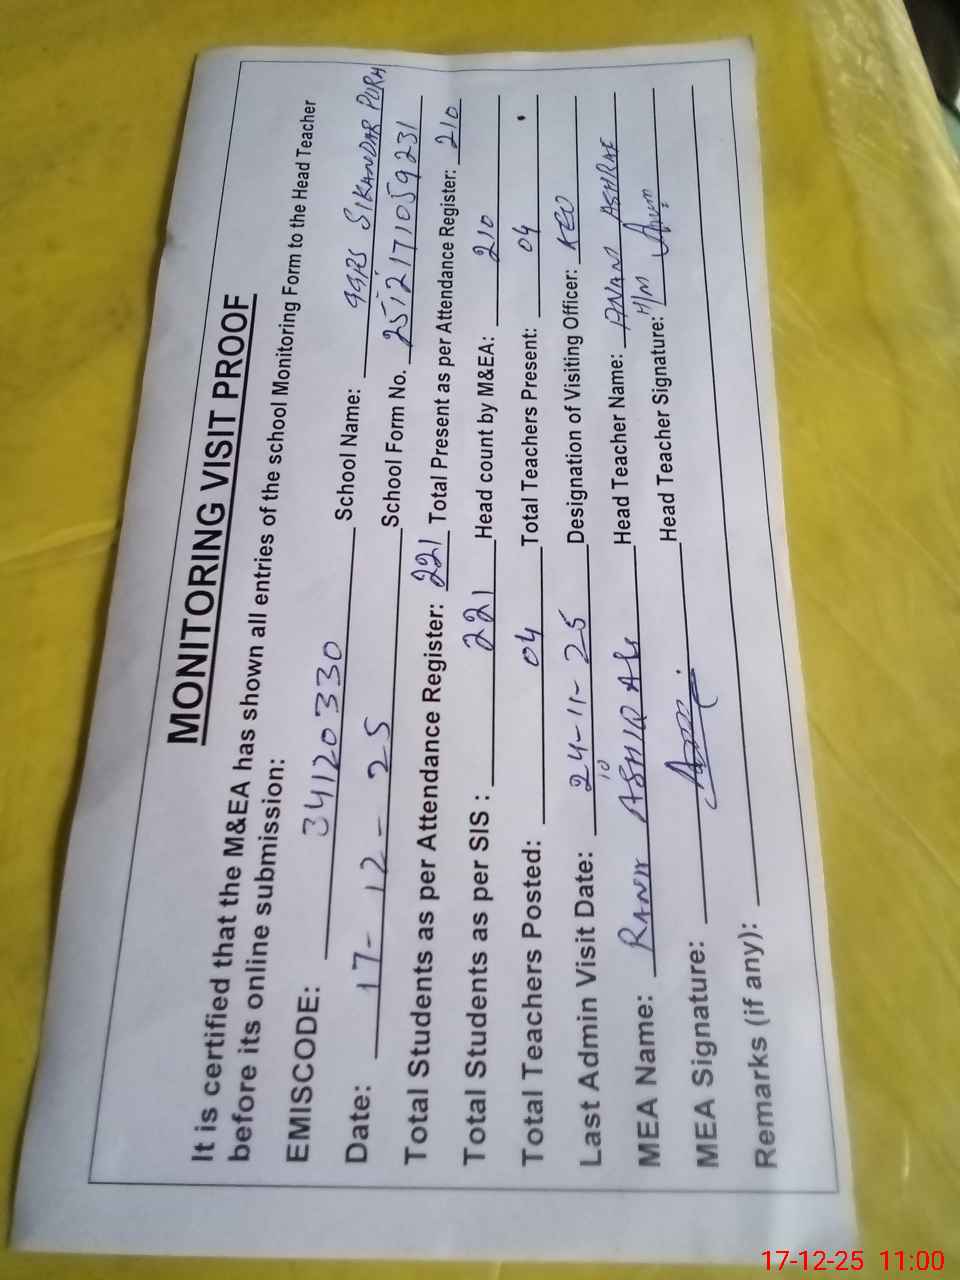 MONITORING VISIT PROOF
It is certified that the M&EA has shown all entries of the school Monitoring Form to the Head Teacher
before its online submission:
EMISCODE: 34120330 School Name: GGPS SIKANDAR PURA
Date: 17-12-25 School Form No. 2512171059231
Total Students as per Attendance Register: 221 Total Present as per Attendance Register: 210
Total Students as per SIS : 221 Head count by M&EA: 210
Total Teachers Posted: 04 Total Teachers Present: 04
Last Admin Visit Date: 24-11-25 Designation of Visiting Officer:
MEA Name: RANA Head Teacher Name: ASHRAF
MEA Signature: Head Teacher Signature: H/M Anum
Remarks (if any):
17-12-25 11:00